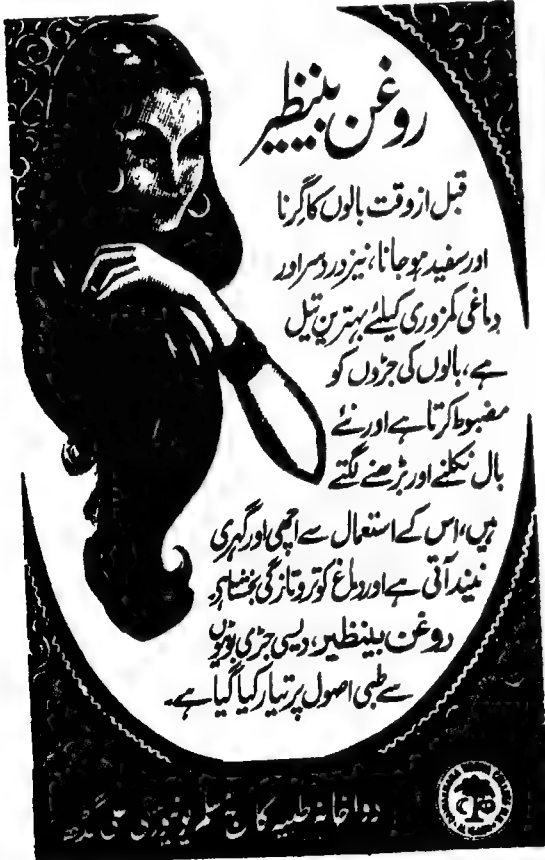 روغن بینظیر
قبل از وقت بالوں کا گرنا
اور سفید ہو جانا، نیز درد سر اور
دماغی کمزوری کیلئے بہترین تیل
ہے، بالوں کی جڑوں کو
مضبوط کرتا ہے اور نئے
بال نکلنے اور بڑھنے لگتے
ہیں، اس کے استعمال سے اچھی اور گہری
نیند آتی ہے اور دماغ کو تروتازگی بخشتا ہے۔
روغن بینظیر، دیسی جڑی بوٹیوں
سے طبی اصول پر تیار کیا گیا ہے۔
دواخانہ طبیہ کالج مسلم یونیورسٹی علی گڑھ